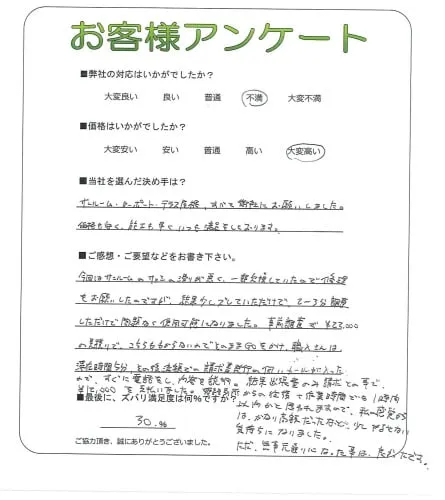 お客様アンケート
■弊社の対応はいかがでしたか？
大変良い 良い 普通 不満 大変不満
■価格はいかがでしたか？
大変安い 安い 普通 高い 大変高い
■当社を選んだ決め手は？
サンルーム・カーポート・テラス屋根、すべて御社にお願いしました。
価格も安く、施工も早く いつも満足をしております。
■ご感想・ご要望などをお書き下さい。
今回はサンルームのサッシの滑りが悪く、一部交換していたので修理
をお願いしたのですが、結果少しズレていただけで、2〜3分調整
しただけで問題なく使用可能になりました。事前調査で¥23,000
の見積りで、こちらもわからないのでそのままGOをかけ、職人さんは
滞在時間5分、その後満額での請求書発行の
ので、すぐに電話をし、内容を説明。結果出張費のみ請求との事で、
¥12,000を支払いました。
からの往復で作業時間でも1時間
以内かと思われますので、私の感覚から
は、かなり高額だったなと、少しやるせない
気持ちになりました。
ただ、無事元通りになった事は、良かったです。
■最後に、ズバリ満足度は何％ですか？
30.％
ご協力頂き、誠にありがとうございました。